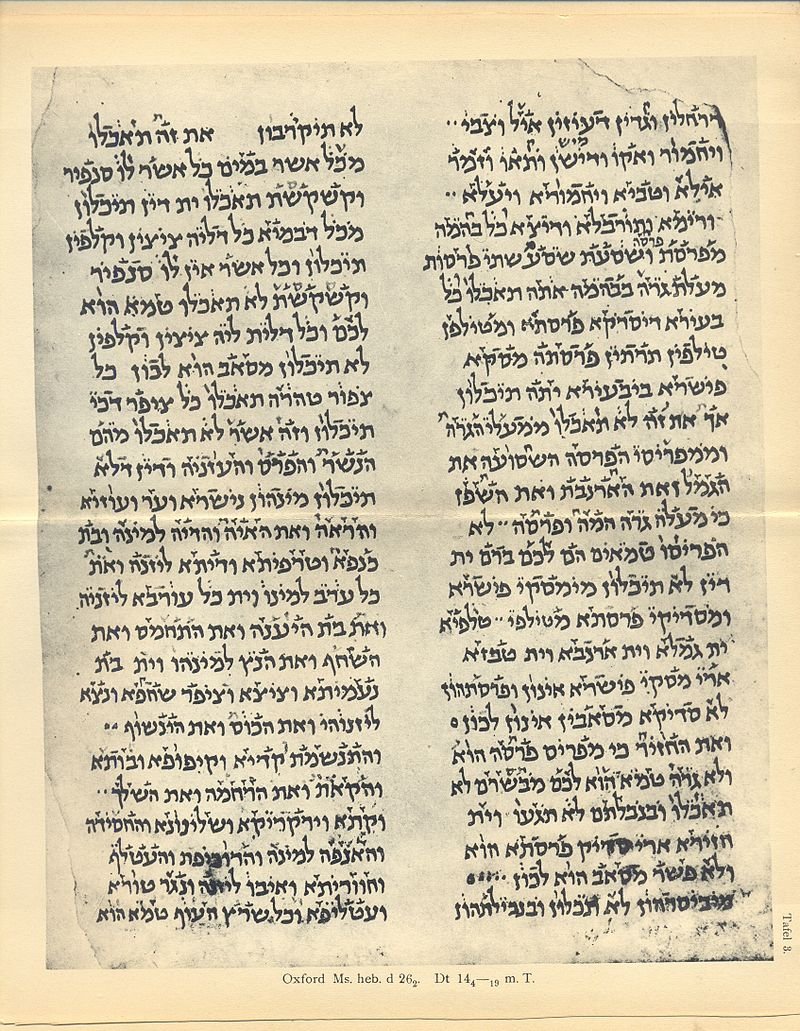 דרחלין וגדין דעוזין אייל וצבי ··
ויחמור ואקו ודישן ותאו וזמר
אילא וטביא ויחמורא ויעלא ··
ורימא ותורבלא ודיצא כל בהמה
מפרסת פרסה ושסעת שסע שתי פרסות
מעלת גרה בבהמה אתה תאכלו כל
בעירא דיסדקא פרסתא ומטולפן
טילפין תרתין פרסתה מסקא
פושרא ביבעירא יתה תיכלון
אך את זה לא תאכלו ממעלי הגרה
וממפריסי הפרסה השסועה את
הגמל ואת הארנבת ואת השפן
כי מעלה גרה המה ופרסה ·· לא
הפריסו טמאים הם לכם ברם ית
דין לא תיכלון מימסקי פושרא
ומסדיקי פרסתא מטילפי ·· טלפיא
ית גמלא וית ארנבא וית טבזא
ארי מסקי פושרא אינון ופרסתהון
לא סדיקא מסאבין אינון לכון ס
ואת החזיר כי מפריס פרסה הוא
ולא גרה טמא הוא לכם מבשרם לא
תאכלו ובנבלתם לא תגעו וית
חזירא ארי סדיק פרסתא הוא
ולא פשר מסאב הוא לכון
מיביסרהון לא תכלון ובנבילתהון
לא תיקרבון את זה תאכלו
מכל אשר במים כל אשר לו סנפיר
וקשקשת תאכלו ית דין תיכלון
מכל דבמיא כל דליה ציצין וקלפין
תיכלון וכל אשר אין לו סנפיר
וקשקשת לא תאכלו טמא הוא
לכם וכל דלית ליה ציצין וקלפין
לא תיכלון מסאב הוא לכון כל
צפור טהרה תאכלו כל ציפר דכי
תיכלון וזה אשר לא תאכלו מהם
הנשר והפרס והעזניה ודין דלא
תיכלון מינהון נישרא וער ועוזיא
והראה ואת האיה והדיה למינה ובת
כנפא וטרפיתא ודיתא ליזנה ואת
כל ערב למינו וית כל עורבא ליזניה
ואת בת היענה ואת התחמס ואת
השחף ואת הנץ למינהו וית בת
נעמיתא וציצא וציפר שחפא ונצא
ליזנוהי ואת הכוס ואת הינשוף ··
והתנשמת קדיא וקיפופא ובותא
והקאת ואת הרחמה ואת השלך ··
וקתא וירקריקא ושלינונא והחסידה
והאנפה למינה והדוכיפת והעטלף
וחווריתא ואיבו ליזנה ונגר טורא
ועטליפא וכל שרץ העוף טמא הוא
Oxford Ms. heb. d 26₂. Dt 14₄—₁₉ m. T.
Tafel 3.